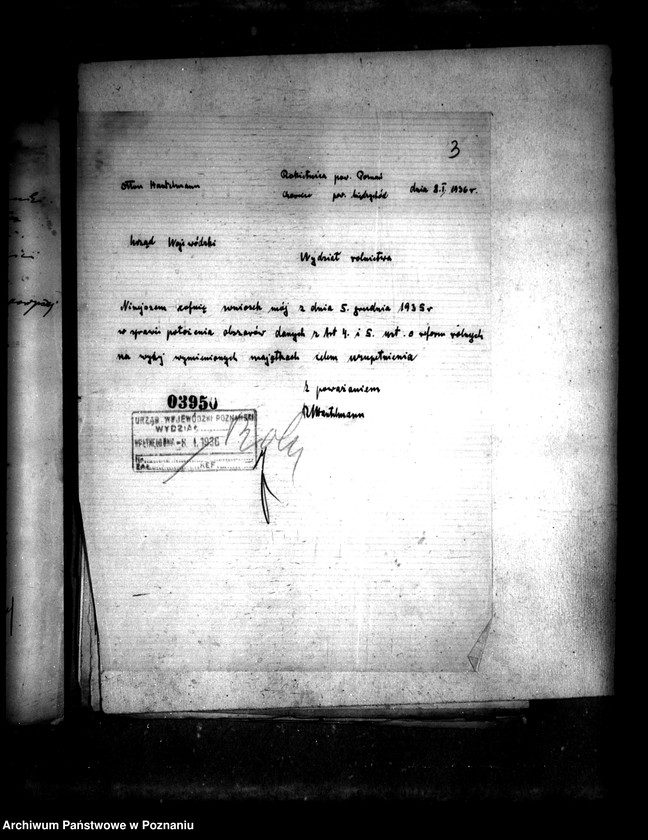 3
Rokietnica pow. Poznań
Otton Hartelmann
pow. Międzychód dnia 8.I. 1936 r.
Urząd Wojewódzki
Wydział rolnictwa
Niniejszem cofnię wniosek mój z dnia 5. grudnia 1935 r
w sprawie położenia obszarów danych z Art 4. i 5. ust. o reform rolnych
na wyżej wymienionych majątkach celem uzupełnienia
Z poważaniem
03950
URZĄD WOJEWÓDZKI POZNAŃSKI
WYDZIAŁ
WPŁYNĘŁO DNIA -8. I. 1936
ZAŁ. REF.
Archiwum Państwowe w Poznaniu